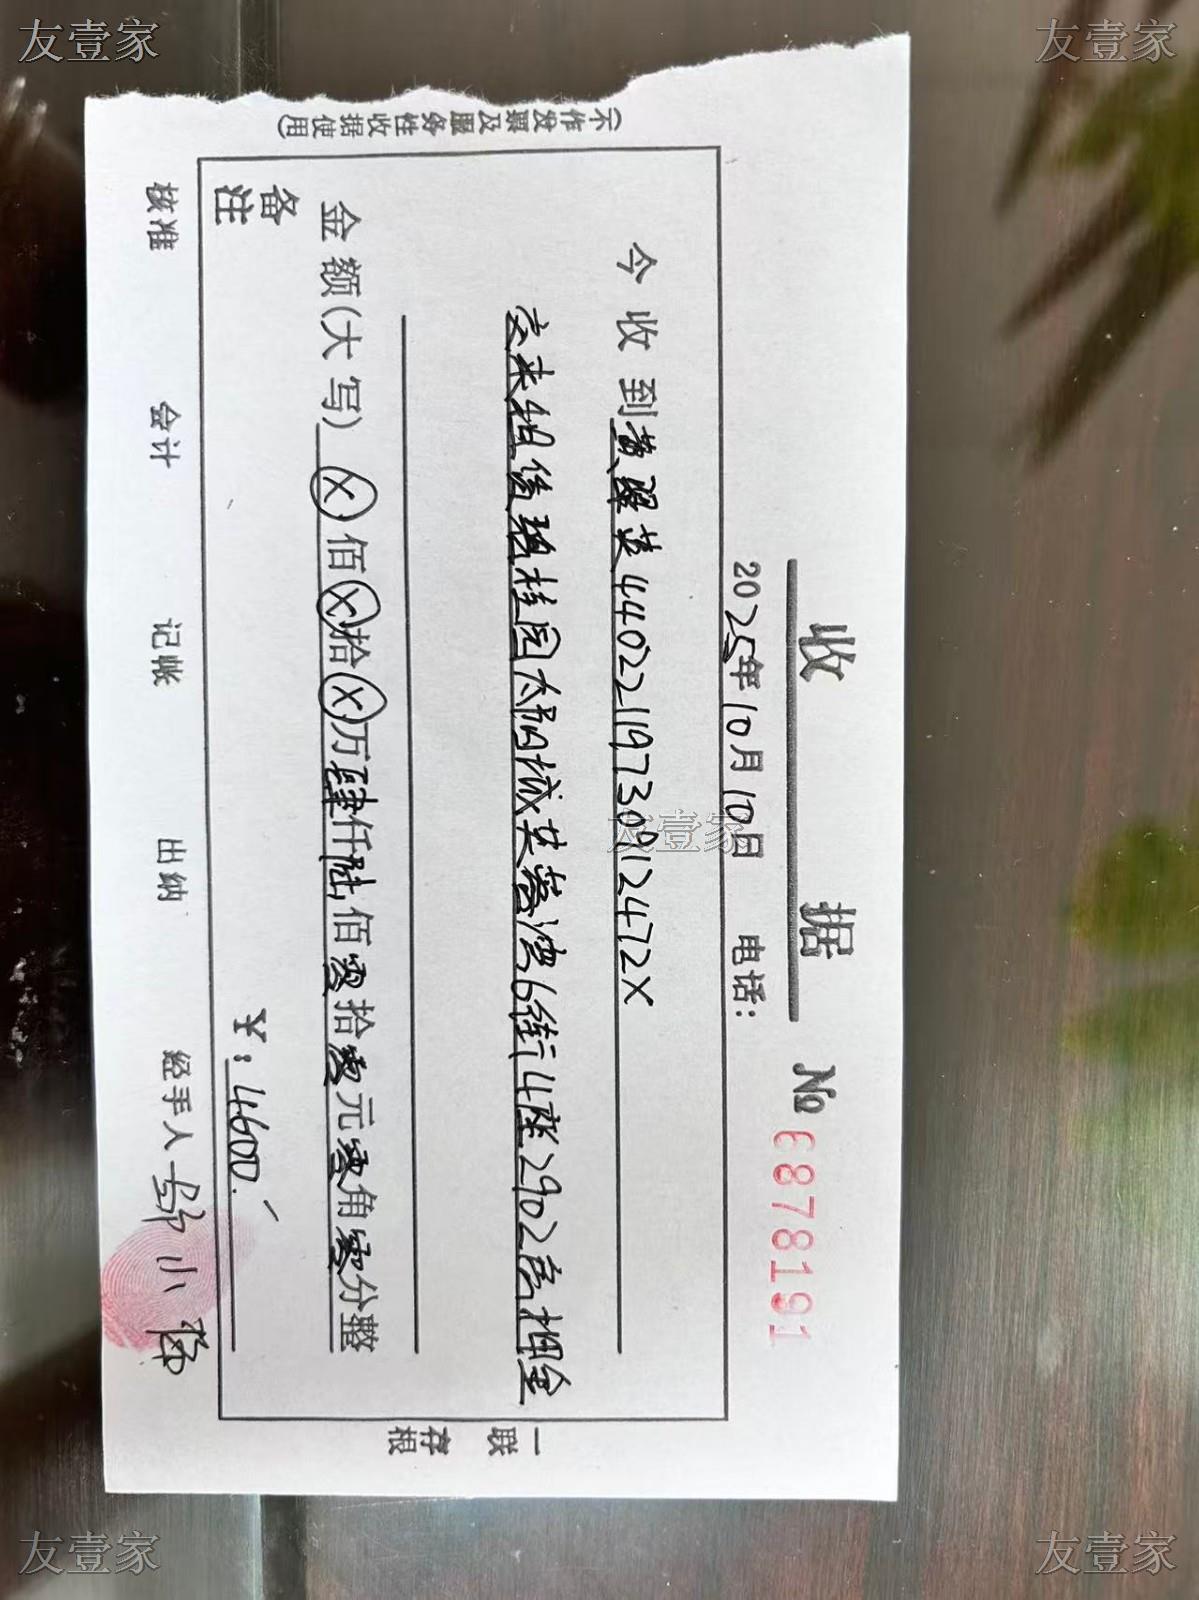 友壹家
友壹家
收据
№ 6878191
2025年10月10日 电话:
今收到黄翠英44022119730912472X
交来租住碧桂园太阳城芙蓉湾6街4座2902房押金
金额(大写) ⓧ佰ⓧ拾ⓧ万肆仟陆佰零拾零元零角零分整
备注
¥:4600
核准 会计 记帐 出纳 经手人 小
(不作发票及服务性收据使用)
一联 存根
友壹家
友壹家
友壹家